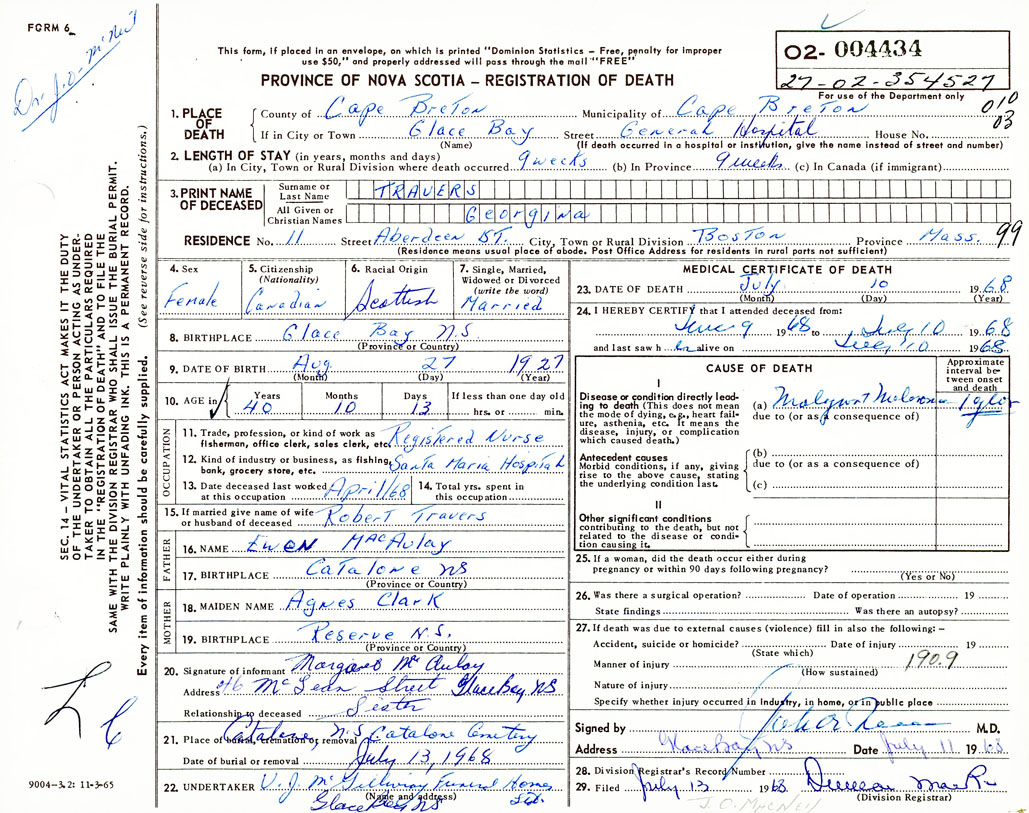 FORM 6
Dr. J. O. McNeil
This form, if placed in an envelope, on which is printed "Dominion Statistics – Free, penalty for improper
use $50," and properly addressed will pass through the mail "FREE"
PROVINCE OF NOVA SCOTIA – REGISTRATION OF DEATH
02- 004434
27-02-354527
For use of the Department only
010
03
1. PLACE OF DEATH
County of Cape Breton Municipality of Cape Breton
If in City or Town Glace Bay Street General Hospital House No.
(Name) (If death occurred in a hospital or institution, give the name instead of street and number)
2. LENGTH OF STAY (in years, months and days)
(a) In City, Town or Rural Division where death occurred 9 weeks (b) In Province 9 weeks (c) In Canada (if immigrant)
3. PRINT NAME OF DECEASED
Surname or Last Name TRAVERS
All Given or Christian Names Georgina
RESIDENCE No. 11 Street Aberdeen ST. City, Town or Rural Division Boston Province Mass. 99
(Residence means usual place of abode. Post Office Address for residents in rural parts not sufficient)
4. Sex
Female
5. Citizenship
(Nationality)
Canadian
6. Racial Origin
Scottish
7. Single, Married,
Widowed or Divorced
(write the word)
Married
8. BIRTHPLACE Glace Bay N S
(Province or Country)
9. DATE OF BIRTH Aug. 27 1927
(Month) (Day) (Year)
10. AGE in
Years Months Days If less than one day old
40 10 13 hrs. or min.
OCCUPATION
11. Trade, profession, or kind of work as
fisherman, office clerk, sales clerk, etc. Registered Nurse
12. Kind of industry or business, as fishing,
bank, grocery store, etc. Santa Maria Hospital
13. Date deceased last worked
at this occupation April/68
14. Total yrs. spent in
this occupation
15. If married give name of wife
or husband of deceased Robert Travers
FATHER
16. NAME Ewen MacAulay
17. BIRTHPLACE Catalone NS
(Province or Country)
MOTHER
18. MAIDEN NAME Agnes Clark
19. BIRTHPLACE Reserve N.S.
(Province or Country)
20. Signature of informant Margaret McAulay
Address 46 McLean Street Glace Bay NS
Relationship to deceased Sister
21. Place of burial, cremation or removal Catalone N.S Catalone Cemetery
Date of burial or removal July 13, 1968
22. UNDERTAKER V. J. McGillivray Funeral Home Ltd.
(Name and address)
Glace Bay NS
MEDICAL CERTIFICATE OF DEATH
23. DATE OF DEATH July 10 1968
(Month) (Day) (Year)
24. I HEREBY CERTIFY that I attended deceased from:
June 9 1968 to July 10 1968
and last saw h er alive on July 10 1968
CAUSE OF DEATH
Approximate
interval between onset
and death
I
Disease or condition directly leading to death (This does not mean
the mode of dying, e.g., heart failure, asthenia, etc. It means the
disease, injury, or complication
which caused death.)
(a)
due to (or as a consequence of)
Antecedent causes
Morbid conditions, if any, giving
rise to the above cause, stating
the underlying condition last.
(b)
due to (or as a consequence of)
(c)
II
Other significant conditions
contributing to the death, but not
related to the disease or condition causing it.
25. If a woman, did the death occur either during
pregnancy or within 90 days following pregnancy?
(Yes or No)
26. Was there a surgical operation? Date of operation 19
State findings Was there an autopsy?
27. If death was due to external causes (violence) fill in also the following: –
Accident, suicide or homicide? Date of injury 19
(State which)
Manner of injury 190.9
(How sustained)
Nature of injury
Specify whether injury occurred in industry, in home, or in public place
Signed by M.D.
Address Glace Bay NS Date July 11 1968
28. Division Registrar's Record Number
29. Filed July 13 1968 Duncan
(Division Registrar)
J. O. MacNeil
SEC. 14 – VITAL STATISTICS ACT MAKES IT THE DUTY
OF THE UNDERTAKER OR PERSON ACTING AS UNDERTAKER TO OBTAIN ALL THE PARTICULARS REQUIRED
IN THE "REGISTRATION OF DEATH" AND TO FILE THE
SAME WITH THE DIVISION REGISTRAR WHO SHALL ISSUE THE BURIAL PERMIT.
WRITE PLAINLY WITH UNFADING INK. THIS IS A PERMANENT RECORD.
Every item of information should be carefully supplied. (See reverse side for instructions.)
9004-3.2: 11-3-65